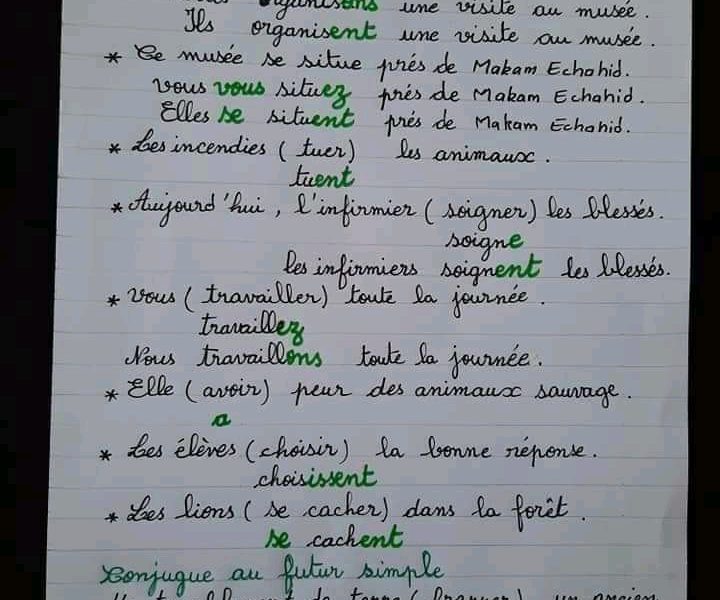 organisons une visite au musée.
Ils organisent une visite au musée.
* Ce musée se situe prés de Makam Echahid.
Vous vous situez prés de Makam Echahid.
Elles se situent prés de Makam Echahid.
* Les incendies (tuer) les animaux.
tuent
* Aujourd'hui, l'infirmier (soigner) les blessés.
soigne
les infirmiers soignent les blessés.
* Vous (travailler) toute la journée.
travaillez
Nous travaillons toute la journée.
* Elle (avoir) peur des animaux sauvage.
a
* Les élèves (choisir) la bonne réponse.
choisissent
* Les lions (se cacher) dans la forêt.
se cachent
Conjugue au futur simple
de terre ( un ancien